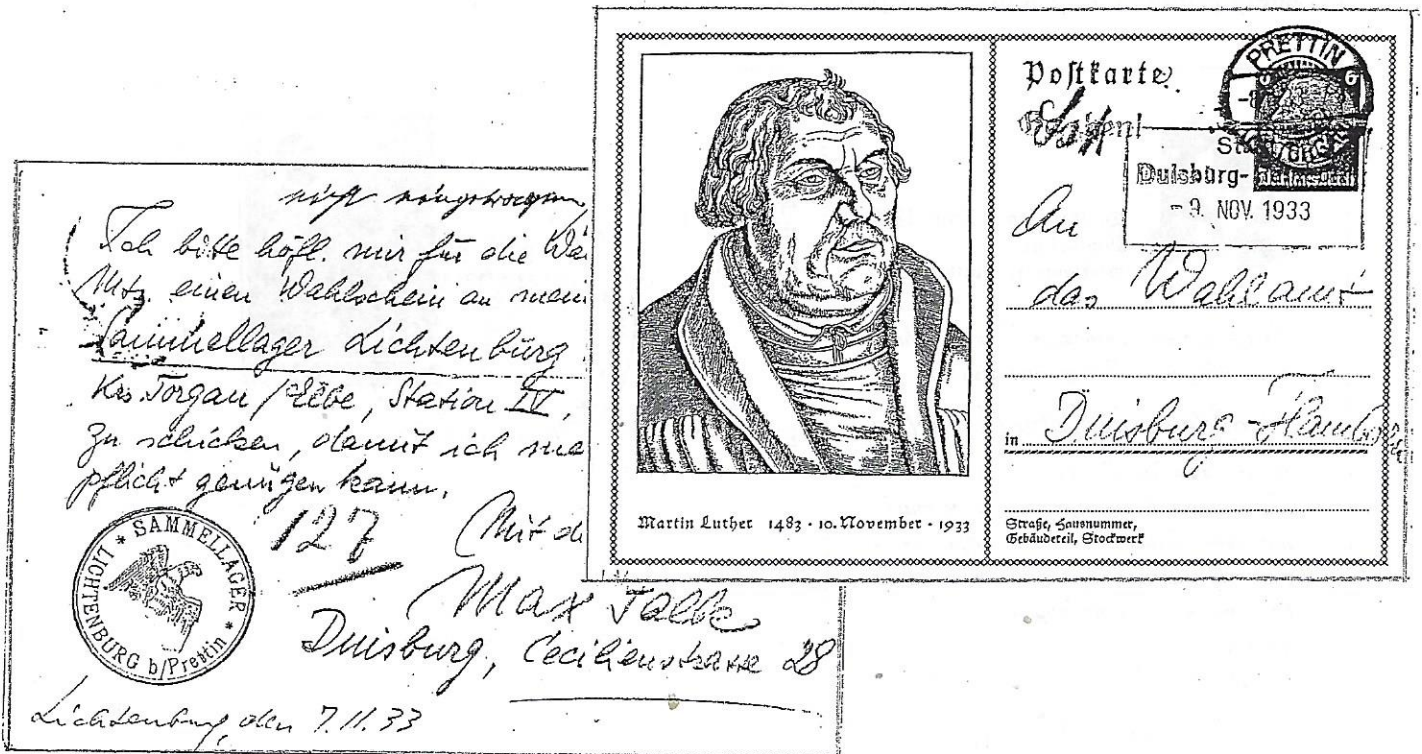 nicht eingetragen
Ich bitte höfl. mir für die Wa
Mts. einen Wahlschein an mein
Sammellager Lichtenburg
Krs. Torgau / Elbe, Station IV,
zu schicken, damit ich mei
pflicht genügen kann.
127
Mit d
Max
Duisburg, Cecilienstrasse 28
Lichtenburg, den 7.11.33
* SAMMELLAGER *
LICHTENBURG b/Prettin
Postkarte
PRETTIN
6
Duisburg-
- 9. NOV. 1933
An
das Wahlamt
in Duisburg-Hambo
Straße, Hausnummer,
Gebäudeteil, Stockwerk
Martin Luther 1483 · 10. November · 1933